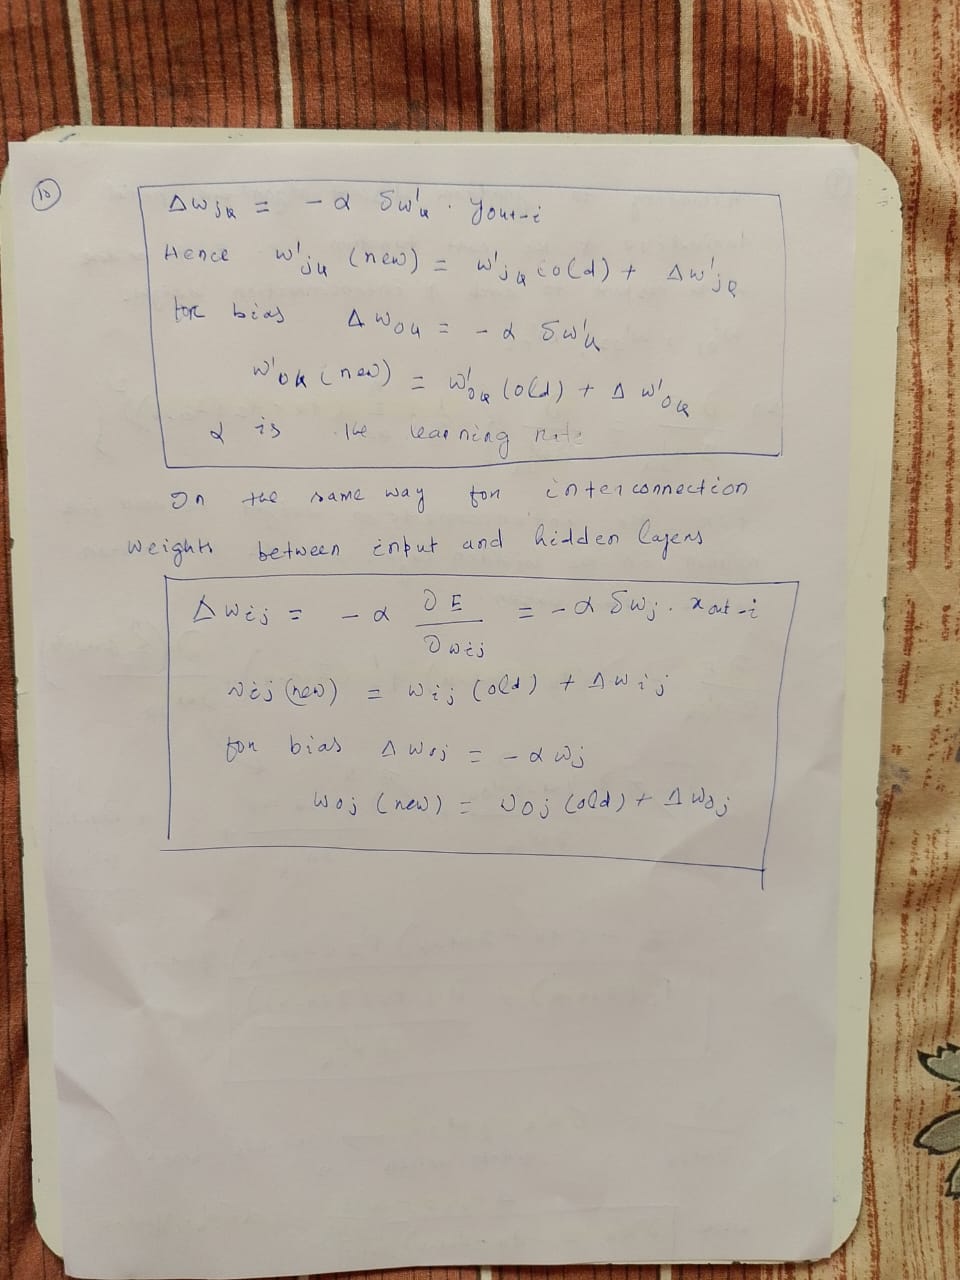 10
Δwjk = - α δw'k . yout-i
Hence w'jk (new) = w'jk (old) + Δw'jk
for bias Δwok = - α δw'k
w'ok (new) = w'ok (old) + Δw'ok
α is the learning rate
In the same way for interconnection
weights between input and hidden layers
Δwij = - α ∂E/∂wij = - α δwj . xout-i
wij (new) = wij (old) + Δwij
for bias Δwoj = - α wj
woj (new) = woj (old) + Δwoj